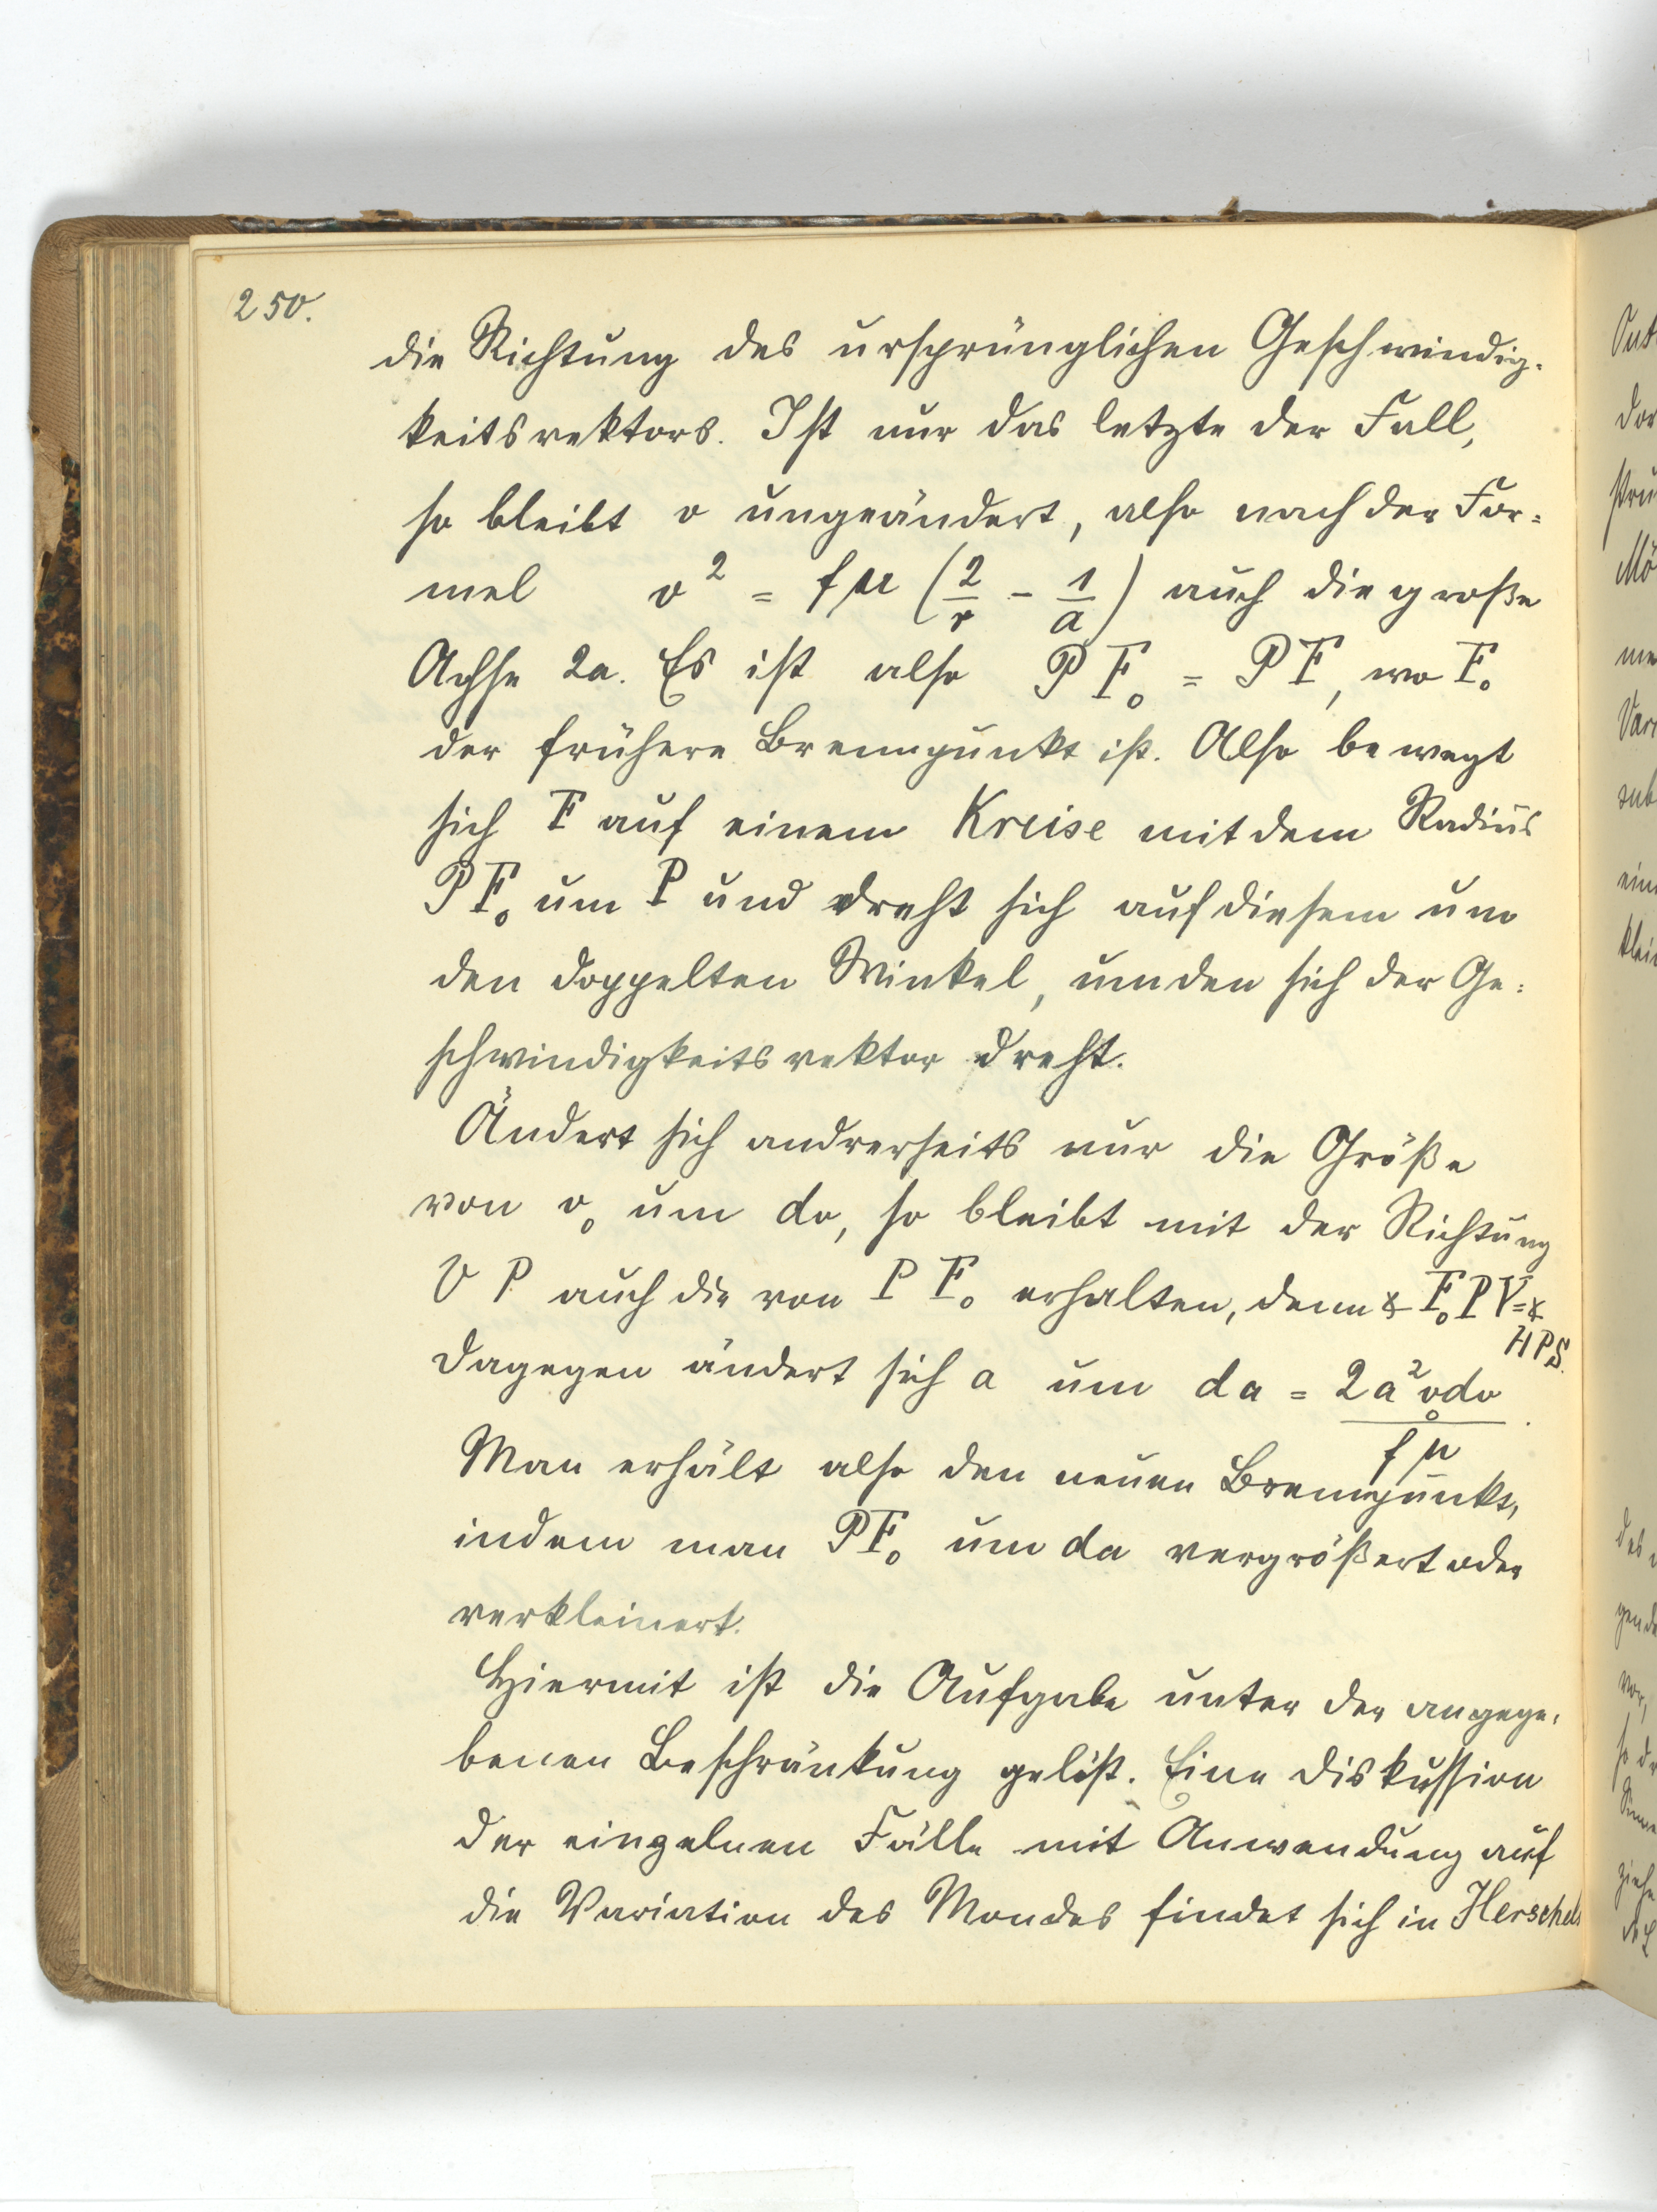 250.
die Richtung des ursprünglichen Geschwindig-
keitsvektors. Ist nur das letzte der Fall,
so bleibt v ungeändert, also nach der For-
mel v² = fμ (2/r - 1/a) auch die große
Achse 2a. Es ist also PF₀ = PF, wo F₀
der frühere Brennpunkt ist. Also bewegt
sich F auf einem Kreise mit dem Radius
PF₀ um P und dreht sich auf diesem um
den doppelten Winkel, um den sich der Ge-
schwindigkeitsvektor dreht.
Ändert sich andrerseits nur die Größe
von v₀ um dv, so bleibt mit der Richtung
V P auch die von P F₀ erhalten, denn ∢ F₀PV = ∢
HPS.
dagegen ändert sich a um da = 2a²v₀dv / fμ.
Man erhält also den neuen Brennpunkt,
indem man PF₀ um da vergrößert oder
verkleinert.
Hiermit ist die Aufgabe unter der angege-
benen Beschränkung gelöst. Eine Diskussion
der einzelnen Fälle mit Anwendung auf
die Variation des Mondes findet sich in Herschels